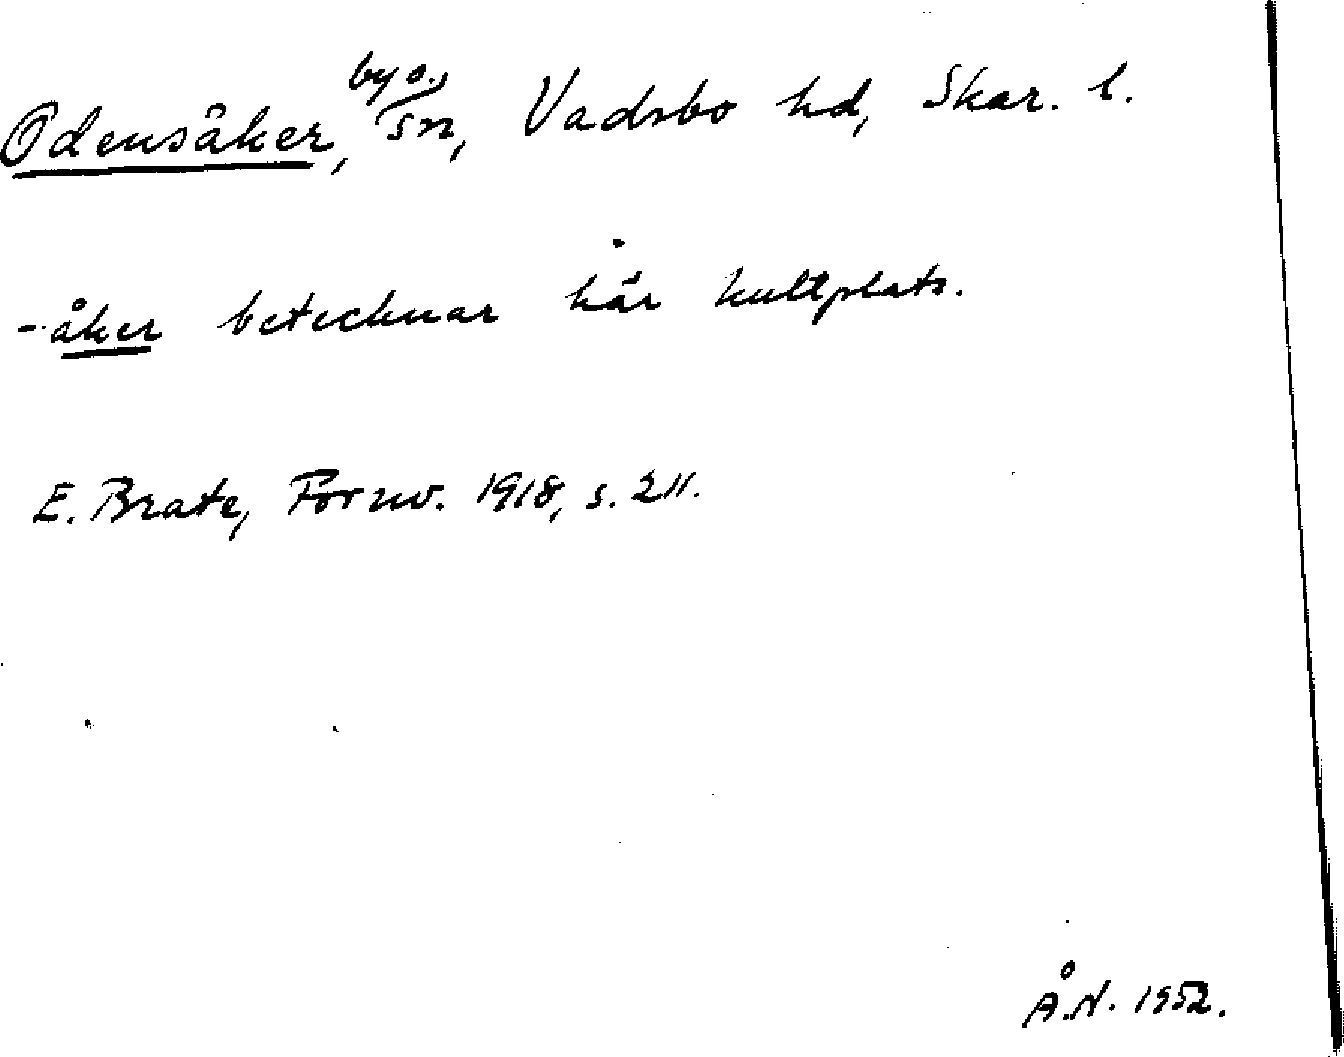 Odensåker, by o. sn, Vadsbo hd, Skar. l.
-åker betecknar här kultplats.
E. Brate, Fornv. 1918, s. 211.
Å.N. 1952.